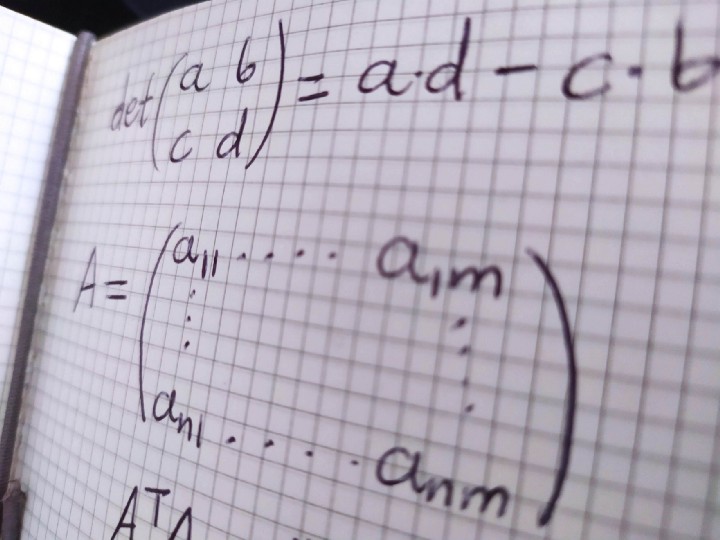 det(a b
c d) = a·d − c·b
A = (a₁₁ .... a₁m
⋮ ⋮
aₙ₁ .... aₙm)
AᵀA